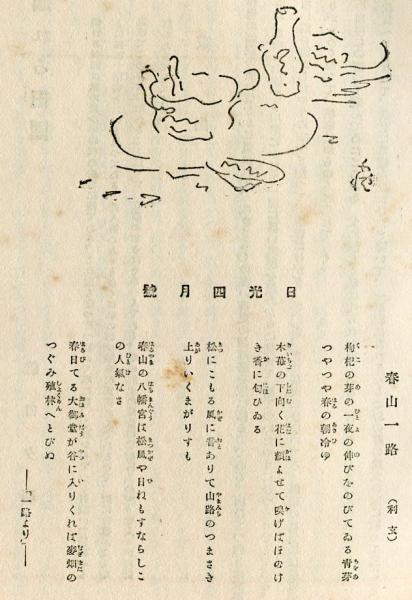 日光四月號
春山一路　（利玄）
枸杞の芽の一夜の伸びをのびてゐる青芽
つやつや春の朝冷ゆ
木苺の下向く花に顔よせて嗅げばほのけ
き香に匂ひゐる
松にこもる風に音ありて山路のつまさき
上りいくまがりすも
春山の八幡宮は松風や日ねもすならしこ
の人氣なさ
春日てる大御堂が谷に入りくれば麥畑の
つぐみ殖林へとびぬ
――「一路より」――